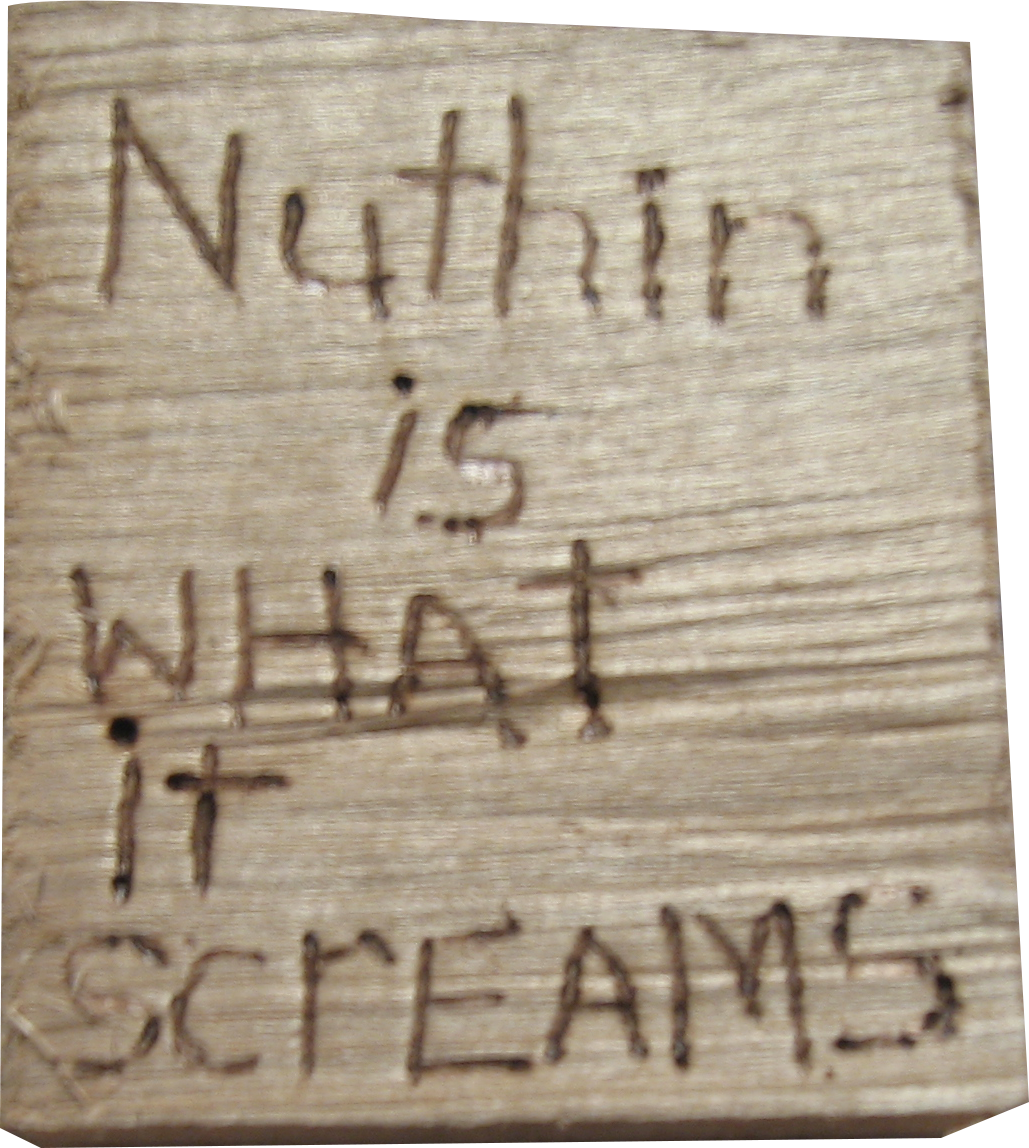 Nuthin
is
WHAT
iT
SCrEAMS